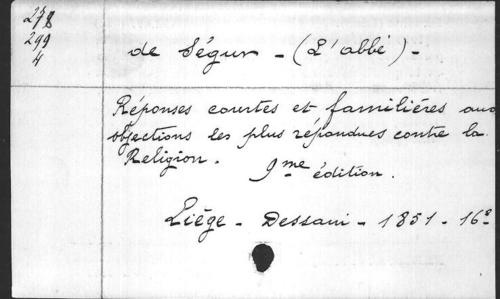 278
299
4
de Ségur - (L'abbé) -
Réponses courtes et familières aux
objections les plus répandues contre la
Religion. 9me édition.
Liège - Dessain - 1851 - 16°